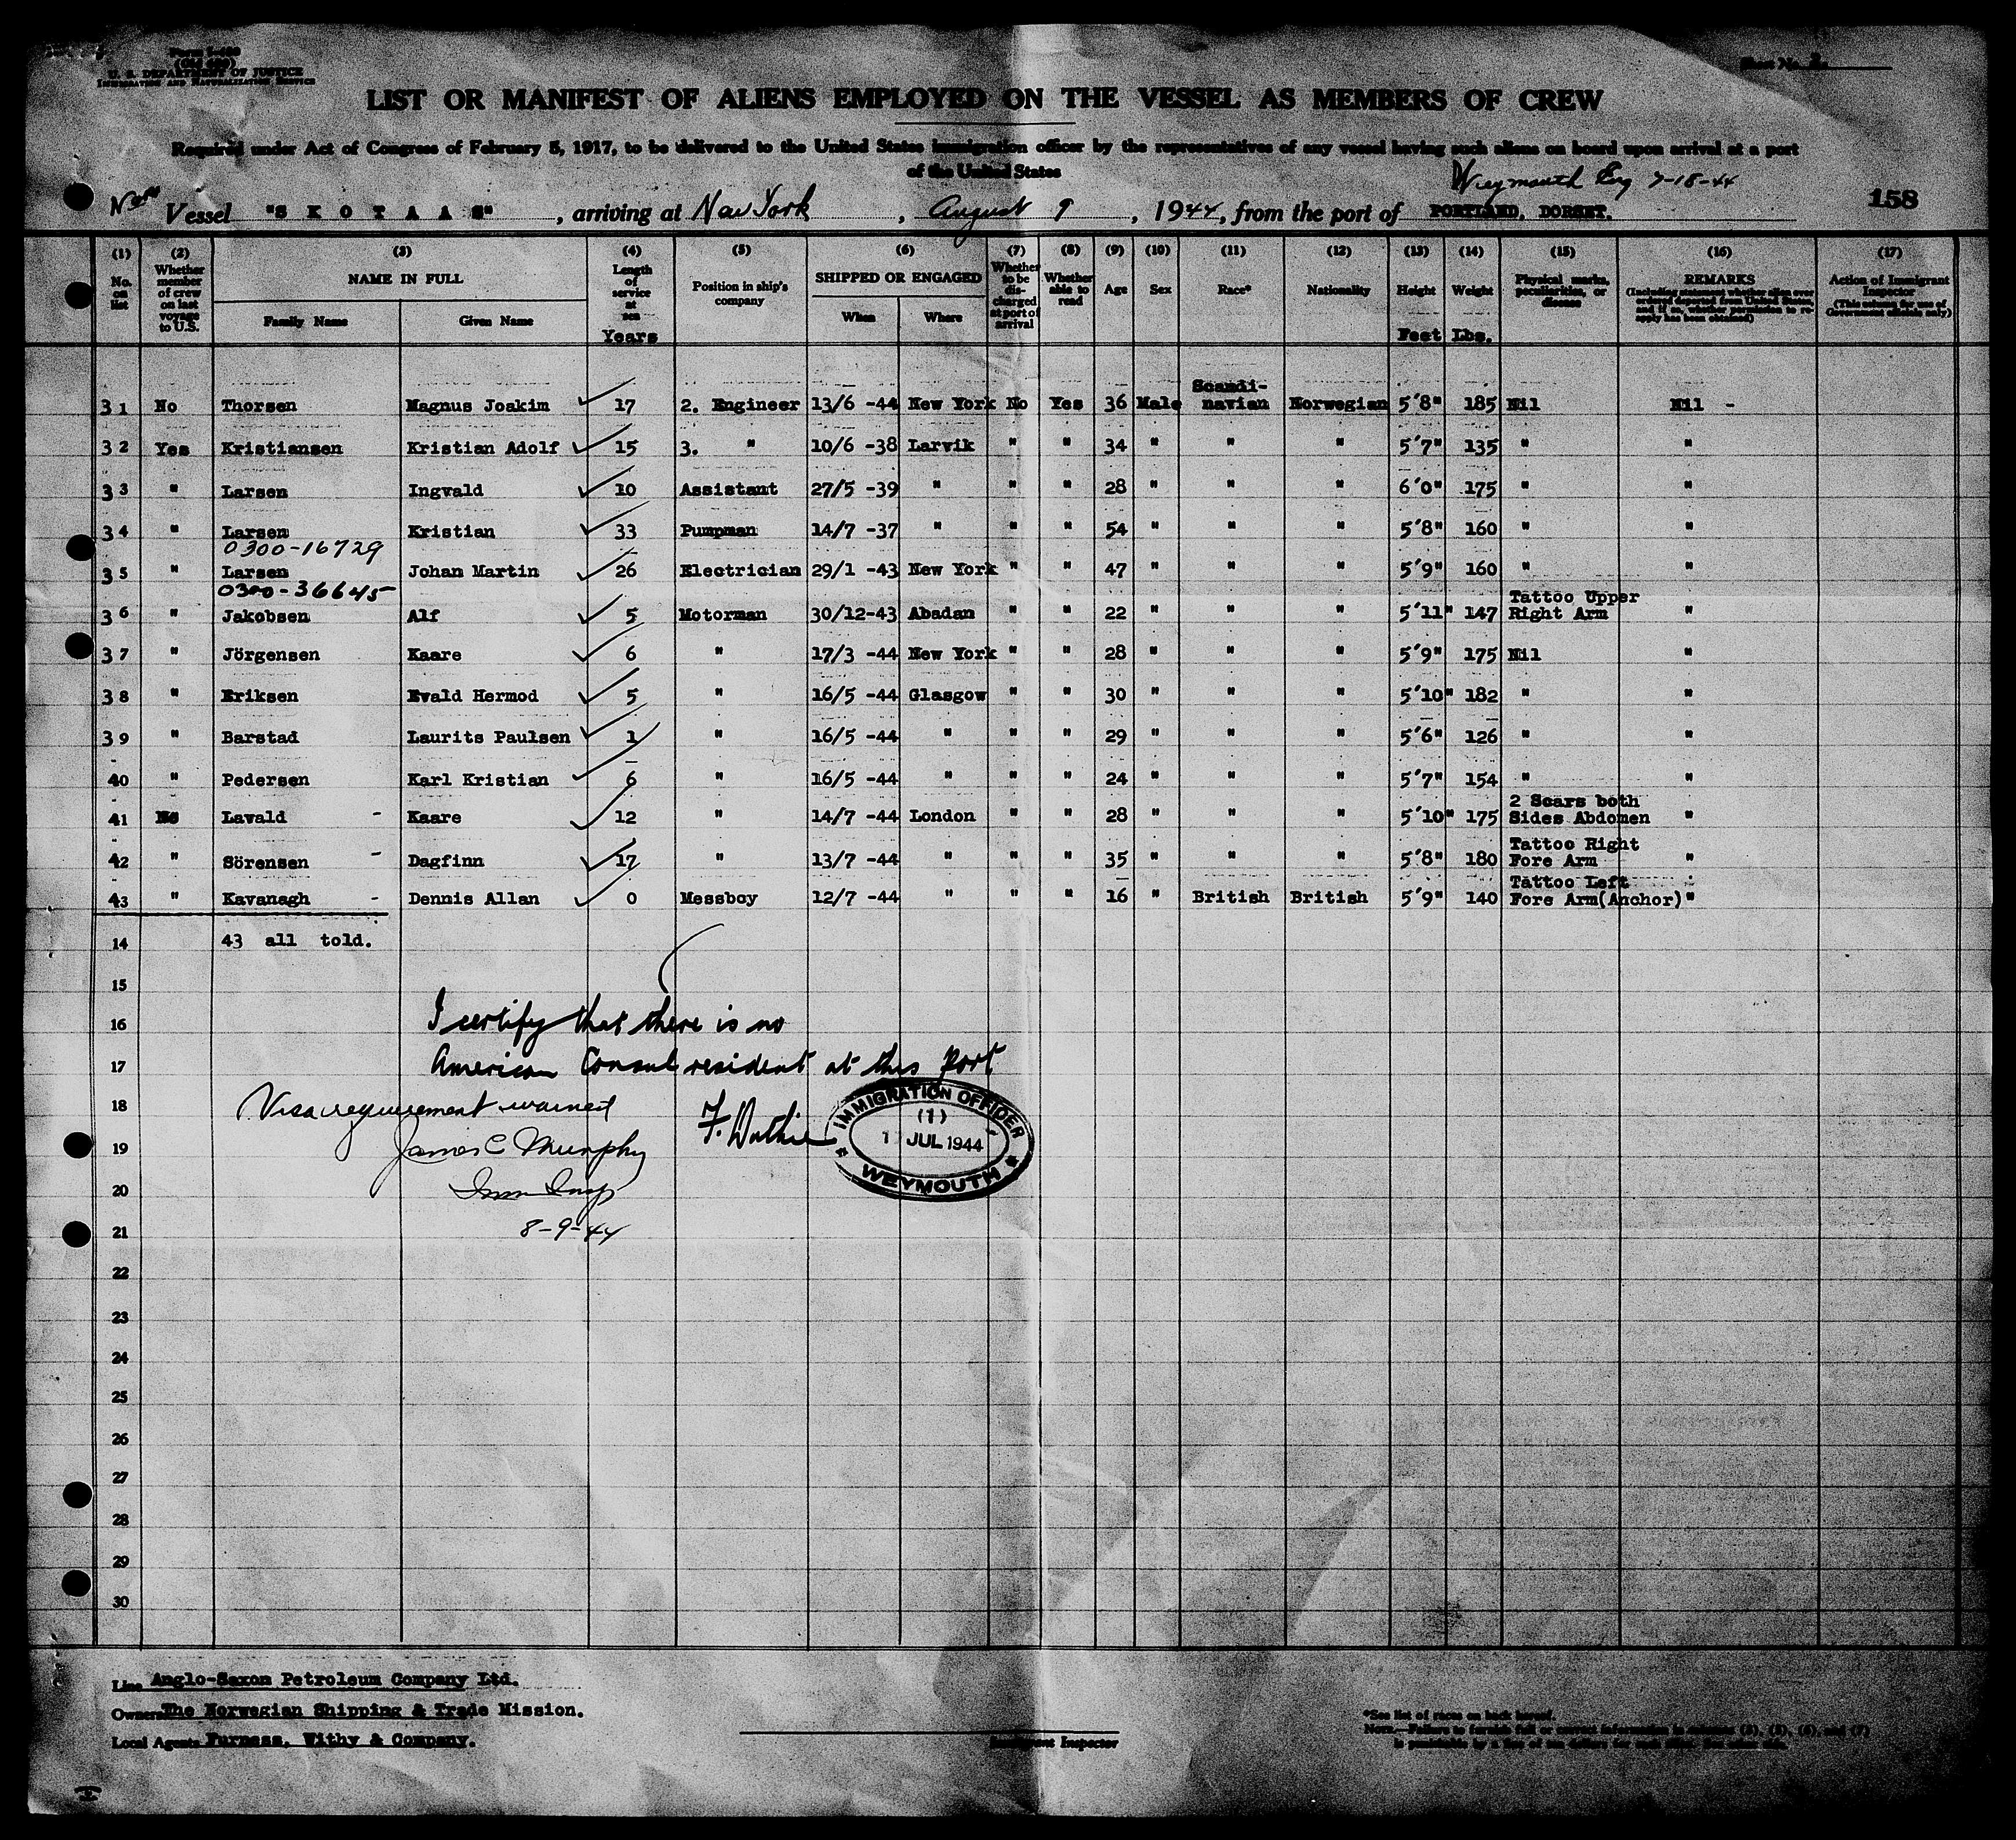 Form I-489
(Old 689)
U. S. DEPARTMENT OF JUSTICE
IMMIGRATION AND NATURALIZATION SERVICE
Sheet No. 2.
LIST OR MANIFEST OF ALIENS EMPLOYED ON THE VESSEL AS MEMBERS OF CREW
Required under Act of Congress of February 5, 1917, to be delivered to the United States immigration officer by the representatives of any vessel having such aliens on board upon arrival at a port
of the United States
Weymouth Eng 7-18-44
Vessel "S K O T A A S", arriving at New York, August 9, 1944, from the port of PORTLAND, DORSET. 158
(1) (2) (3) (4) (5) (6) (7) (8) (9) (10) (11) (12) (13) (14) (15) (16) (17)
No. on list
Whether member of crew on last voyage to U.S.
NAME IN FULL
Family Name Given Name
Length of service at sea
Years
Position in ship's company
SHIPPED OR ENGAGED
When Where
Whether to be discharged at port of arrival
Whether able to read
Age
Sex
Race*
Nationality
Height
Feet
Weight
Lbs.
Physical marks, peculiarities, or disease
REMARKS
(Including statement whether alien ever ordered deported from United States, and if so, whether permission to reapply has been obtained)
Action of Immigrant Inspector
(This column for use of Government officials only)
31 No Thorsen Magnus Joakim 17 2. Engineer 13/6 -44 New York No Yes 36 Male Scandi-navian Norwegian 5'8" 185 Nil Nil -
32 Yes Kristiansen Kristian Adolf 15 3. " 10/6 -38 Larvik " " 34 " " " 5'7" 135 " "
33 " Larsen Ingvald 10 Assistant 27/5 -39 " " " 28 " " " 6'0" 175 " "
34 " Larsen Kristian 33 Pumpman 14/7 -37 " " " 54 " " " 5'8" 160 " "
0300-16729
35 " Larsen Johan Martin 26 Electrician 29/1 -43 New York " " 47 " " " 5'9" 160 " "
0300-36645
36 " Jakobsen Alf 5 Motorman 30/12-43 Abadan " " 22 " " " 5'11" 147 Tattoo Upper Right Arm "
37 " Jörgensen Kaare 6 " 17/3 -44 New York " " 28 " " " 5'9" 175 Nil "
38 " Eriksen Evald Hermod 5 " 16/5 -44 Glasgow " " 30 " " " 5'10" 182 " "
39 " Barstad Laurits Paulsen 1 " 16/5 -44 " " " 29 " " " 5'6" 126 " "
40 " Pedersen Karl Kristian 6 " 16/5 -44 " " " 24 " " " 5'7" 154 " "
41 No Lavald - Kaare 12 " 14/7 -44 London " " 28 " " " 5'10" 175 2 Scars both Sides Abdomen "
42 " Sörensen - Dagfinn 17 " 13/7 -44 " " " 35 " " " 5'8" 180 Tattoo Right Fore Arm "
43 " Kavanagh - Dennis Allan 0 Messboy 12/7 -44 " " " 16 " British British 5'9" 140 Tattoo Left Fore Arm(Anchor) "
14 43 all told.
15
16 I certify that there is no
17 American Consul resident at this Port
18 Visa requirement waived
IMMIGRATION OFFICER
(1)
JUL 1944
WEYMOUTH
19 James C Murphy
20 Imm Insp
21 8-9-44
22
23
24
25
26
27
28
29
30
Line Anglo-Saxon Petroleum Company Ltd.
Owners The Norwegian Shipping & Trade Mission.
Local Agents Furness, Withy & Company.
Immigrant Inspector
*See list of races on back hereof.
NOTE.—Failure to furnish full or correct information in columns (2), (5), (6), and (7)
is punishable by a fine of ten dollars for each alien.